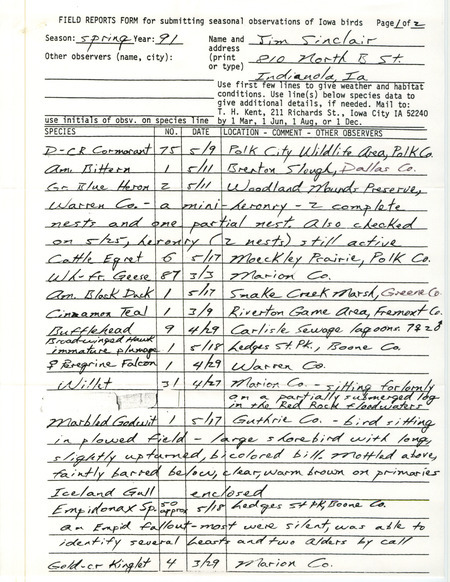 FIELD REPORTS FORM for submitting seasonal observations of Iowa birds Page 1 of 2
Season: Spring Year: 91 Name and Jim Sinclair
Other observers (name, city): address 810 North B St.
(print
or type) Indianola, Ia
Use first few lines to give weather and habitat
conditions. Use line(s) below species data to
give additional details, if needed. Mail to:
T. H. Kent, 211 Richards St., Iowa City IA 52240
use initials of obsv. on species line by 1 Mar, 1 Jun, 1 Aug, or 1 Dec.
SPECIES NO. DATE LOCATION - COMMENT - OTHER OBSERVERS
D-CR Cormorant 75 5/9 Polk City Wildlife Area, Polk Co.
Am. Bittern 1 5/11 Brenton Slough, Dallas Co.
Gr Blue Heron 2 5/11 Woodland Mounds Preserve,
Warren Co. - a mini-heronry - 2 complete
nests and one partial nest. Also checked
on 5/25, heronry (2 nests) still active
Cattle Egret 6 5/17 Moeckley Prairie, Polk Co.
Wh-fr. Geese 87 3/3 Marion Co.
Am. Black Duck 1 5/17 Snake Creek Marsh, Greene Co.
Cinnamon Teal 1 3/9 Riverton Game Area, Fremont Co.
Bufflehead 9 4/29 Carlisle Sewage lagoons. 7♀ 2♂
Broad-winged Hawk
immature plumage 1 5/18 Ledges St. Pk., Boone Co.
Peregrine Falcon 1 4/29 Warren Co.
Willet 31 4/27 Marion Co. - sitting forlornly
on a partially submerged log
in the Red Rock floodwaters
Marbled Godwit 1 5/17 Guthrie Co. - bird sitting
in plowed field - large shorebird with long,
slightly upturned, bicolored bill. Mottled above,
faintly barred below, clear, warm brown on primaries
Iceland Gull enclosed
Empidonax Sp. 50 approx 5/18 Ledges St Pk, Boone Co.
an Empid fallout - most were silent, was able to
identify several leasts and two alders by call
Gold-cr Kinglet 4 3/29 Marion Co.